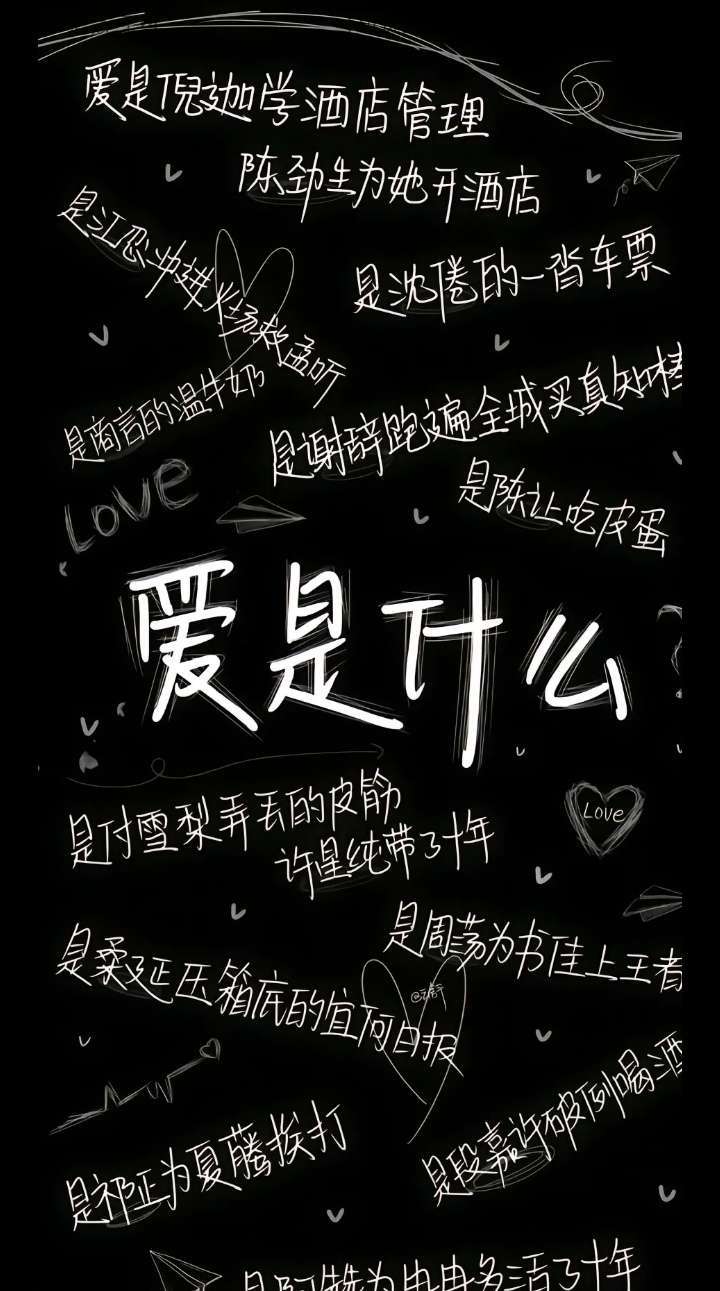 爱是倪迦学酒店管理
陈劲生为她开酒店
是江忍冲进火场救孟听
是沈倦的一沓车票
是商言的温牛奶
是谢辞跑遍全城买真知棒
是陈让吃皮蛋
Love
爱是什么
是付雪梨弄丢的皮筋
许星纯带了十年
Love
是周荡为书佳上王者
是桑延压箱底的宜荷日报
是段嘉许破例喝酒
是祁正为夏藤挨打
为冉冉多活了十年